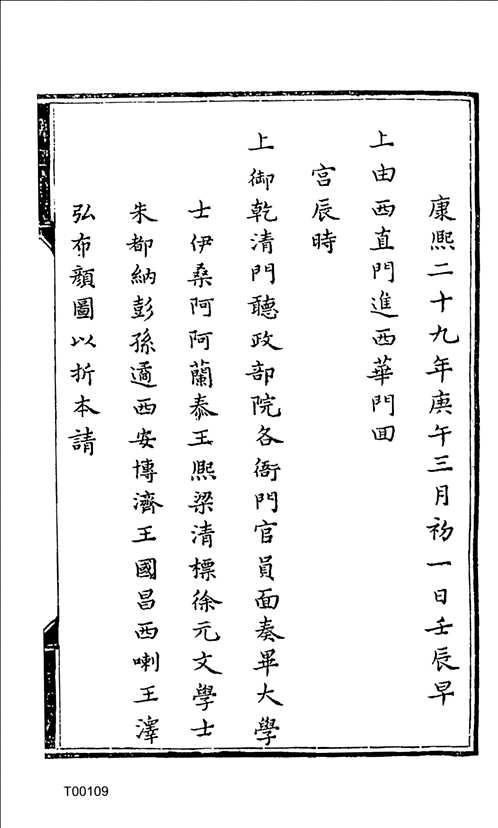 康熙二十九年庚午三月初一日壬辰早
上由西直門進西華門回
宮辰時
上御乾清門聽政部院各衙門官員面奏畢大學
士伊桑阿阿蘭泰王熙梁清標徐元文學士
朱都納彭孫遹西安博濟王國昌西喇王澤
弘布顔圖以折本請
T00109